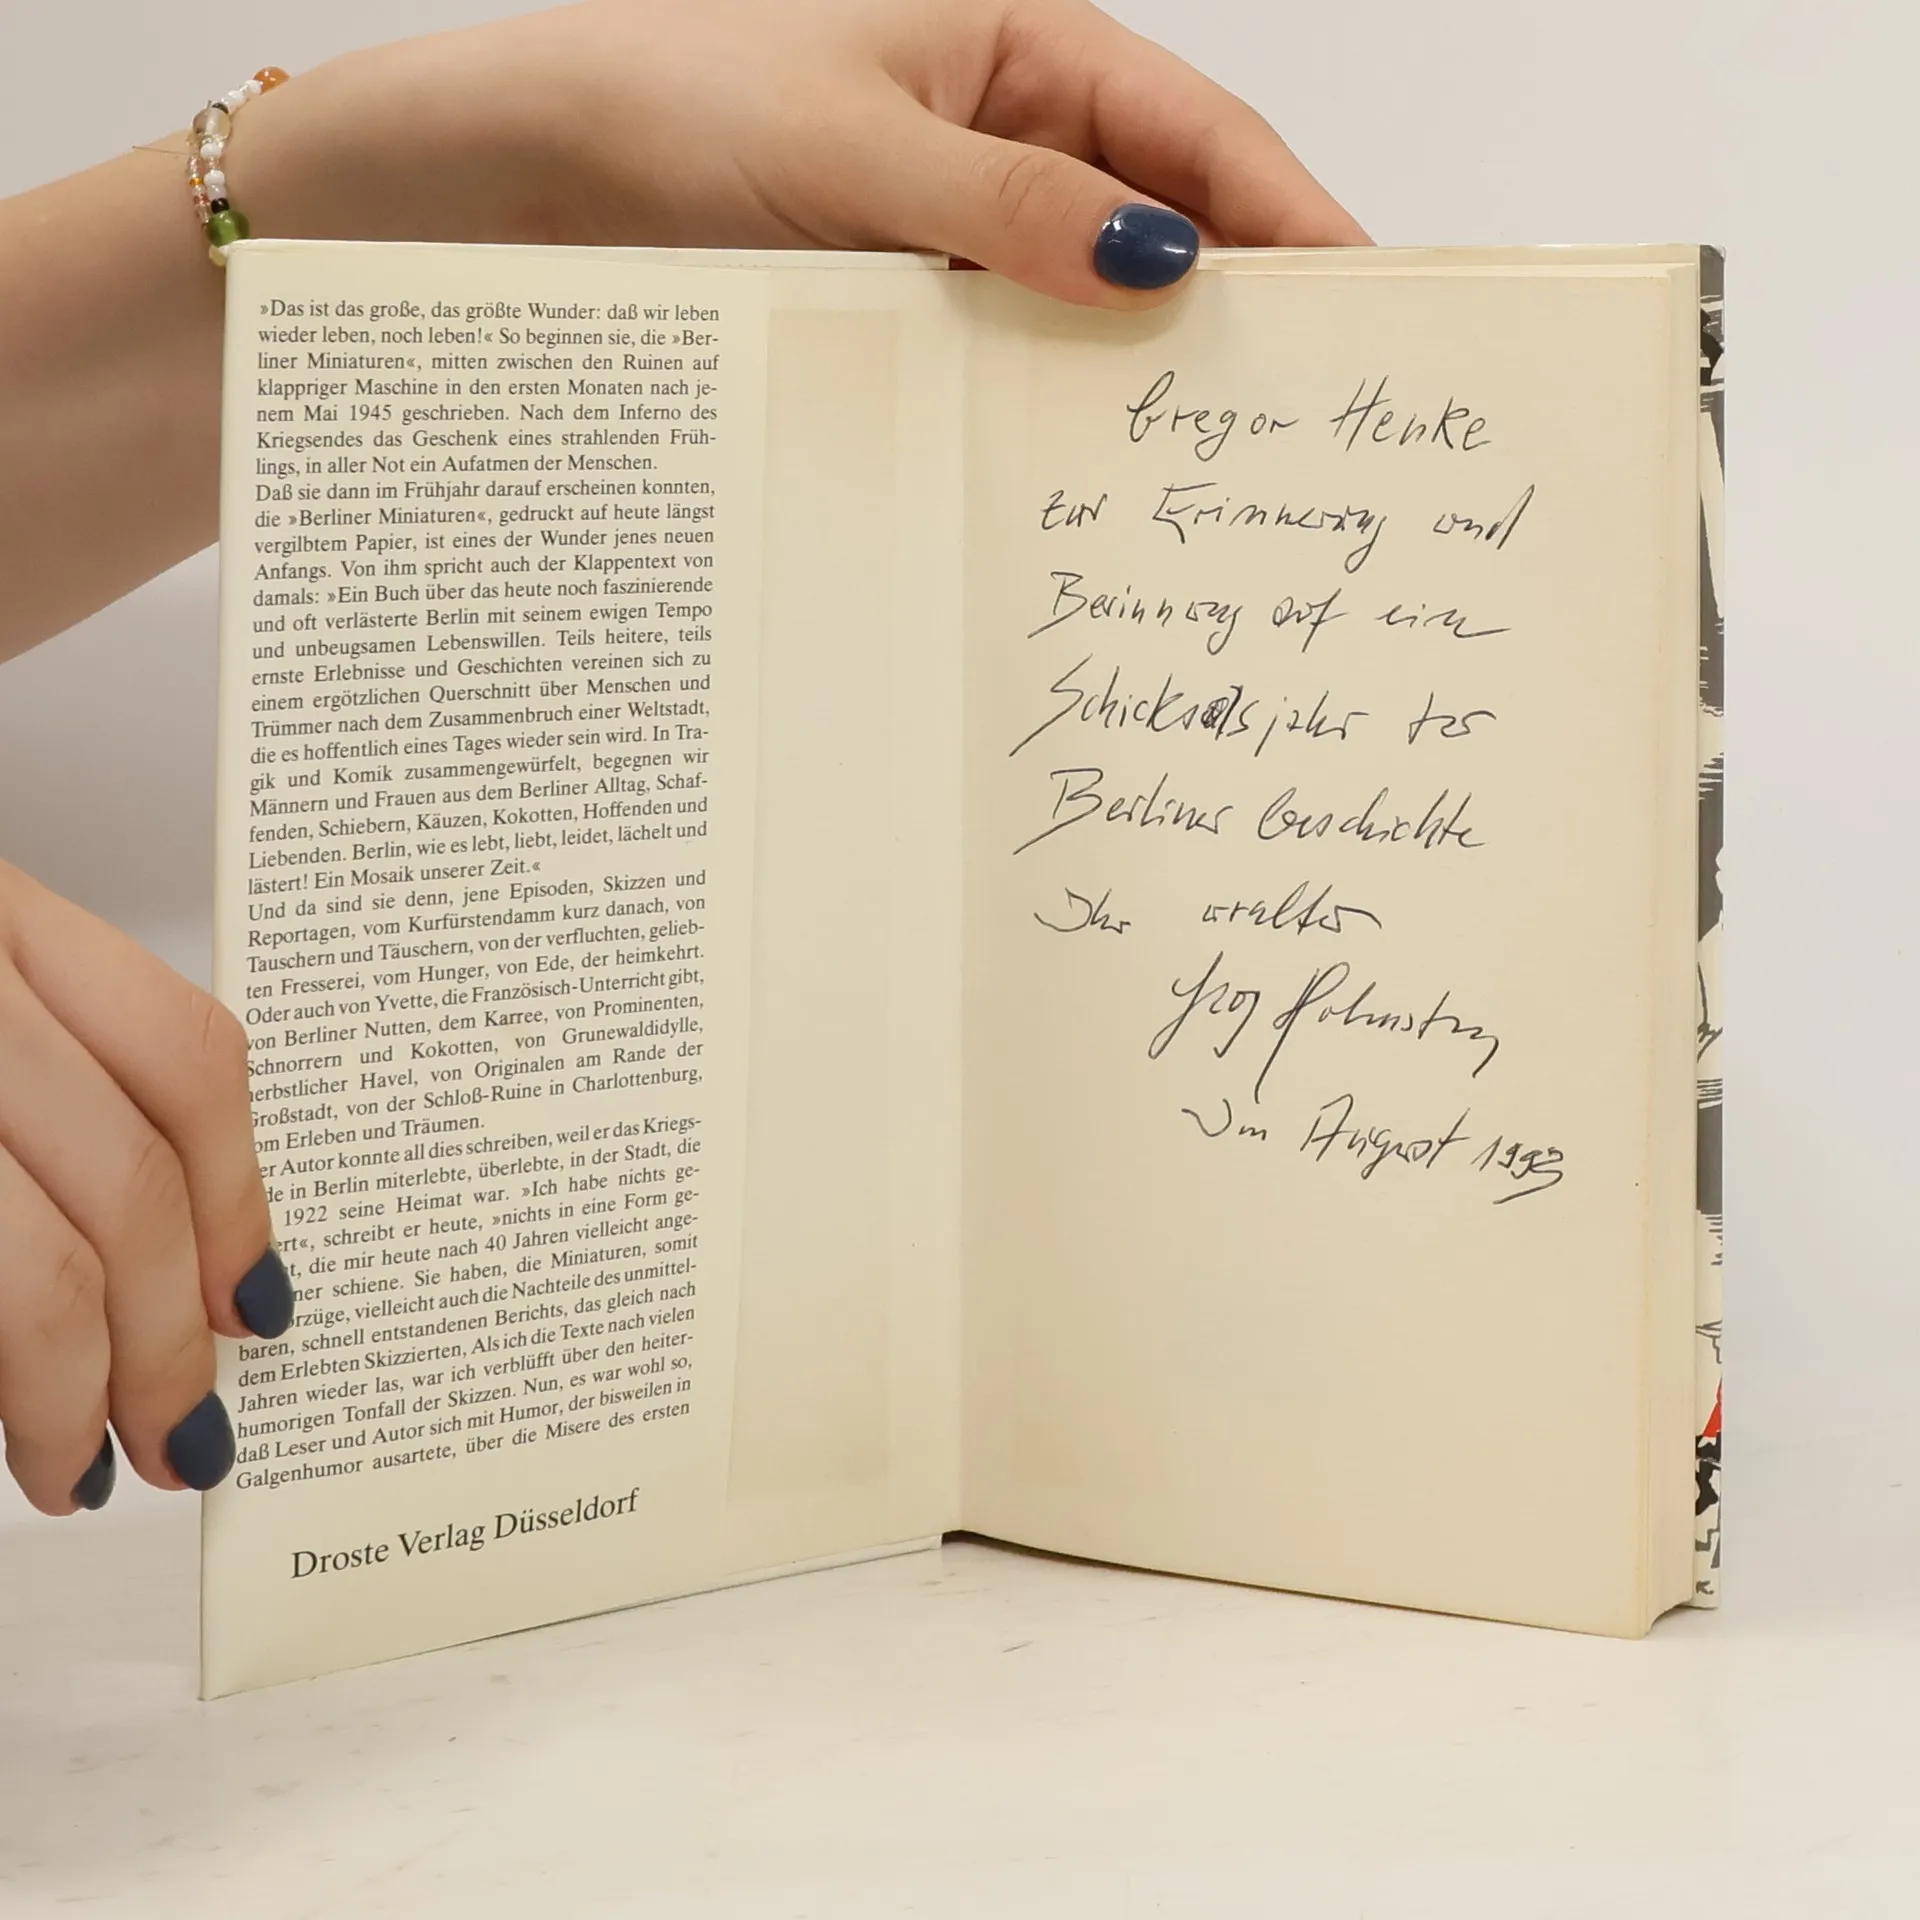 »Das ist das große, das größte Wunder: daß wir leben
wieder leben, noch leben!« So beginnen sie, die »Ber-
liner Miniaturen«, mitten zwischen den Ruinen auf
klappriger Maschine in den ersten Monaten nach je-
nem Mai 1945 geschrieben. Nach dem Inferno des
Kriegsendes das Geschenk eines strahlenden Früh-
lings, in aller Not ein Aufatmen der Menschen.
Daß sie dann im Frühjahr darauf erscheinen konnten,
die »Berliner Miniaturen«, gedruckt auf heute längst
vergilbtem Papier, ist eines der Wunder jenes neuen
Anfangs. Von ihm spricht auch der Klappentext von
damals: »Ein Buch über das heute noch faszinierende
und oft verlästerte Berlin mit seinem ewigen Tempo
und unbeugsamen Lebenswillen. Teils heitere, teils
ernste Erlebnisse und Geschichten vereinen sich zu
einem ergötzlichen Querschnitt über Menschen und
Trümmer nach dem Zusammenbruch einer Weltstadt,
die es hoffentlich eines Tages wieder sein wird. In Tra-
gik und Komik zusammengewürfelt, begegnen wir
Männern und Frauen aus dem Berliner Alltag, Schaf-
fenden, Schiebern, Käuzen, Kokotten, Hoffenden und
Liebenden. Berlin, wie es lebt, liebt, leidet, lächelt und
lästert! Ein Mosaik unserer Zeit.«
Und da sind sie denn, jene Episoden, Skizzen und
Reportagen, vom Kurfürstendamm kurz danach, von
Tauschern und Täuschern, von der verfluchten, gelieb-
ten Fresserei, vom Hunger, von Ede, der heimkehrt.
Oder auch von Yvette, die Französisch-Unterricht gibt,
von Berliner Nutten, dem Karree, von Prominenten,
Schnorrern und Kokotten, von Grunewaldidylle,
herbstlicher Havel, von Originalen am Rande der
Großstadt, von der Schloß-Ruine in Charlottenburg,
om Erleben und Träumen.
er Autor konnte all dies schreiben, weil er das Kriegs-
de in Berlin miterlebte, überlebte, in der Stadt, die
1922 seine Heimat war. »Ich habe nichts ge-
ert«, schreibt er heute, »nichts in eine Form ge-
t, die mir heute nach 40 Jahren vielleicht ange-
ner schiene. Sie haben, die Miniaturen, somit
rzüge, vielleicht auch die Nachteile des unmittel-
baren, schnell entstandenen Berichts, das gleich nach
dem Erlebten Skizzierten, Als ich die Texte nach vielen
Jahren wieder las, war ich verblüfft über den heiter-
humorigen Tonfall der Skizzen. Nun, es war wohl so,
daß Leser und Autor sich mit Humor, der bisweilen in
Galgenhumor ausartete, über die Misere des ersten
Droste Verlag Düsseldorf
Gregor Henke
zur Erinnerung und
Besinnung auf ein
Schicksalsjahr der
Berliner Geschichte
Ihr uralter
Im August 1993